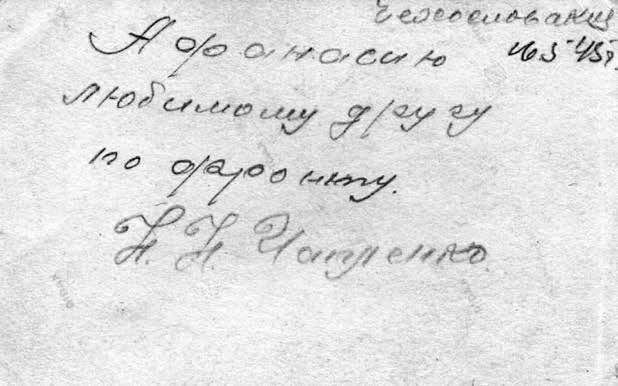 Чехословаки
16.5 45г.
Афанасию
любимому другу
по фронту.
Н. Н.